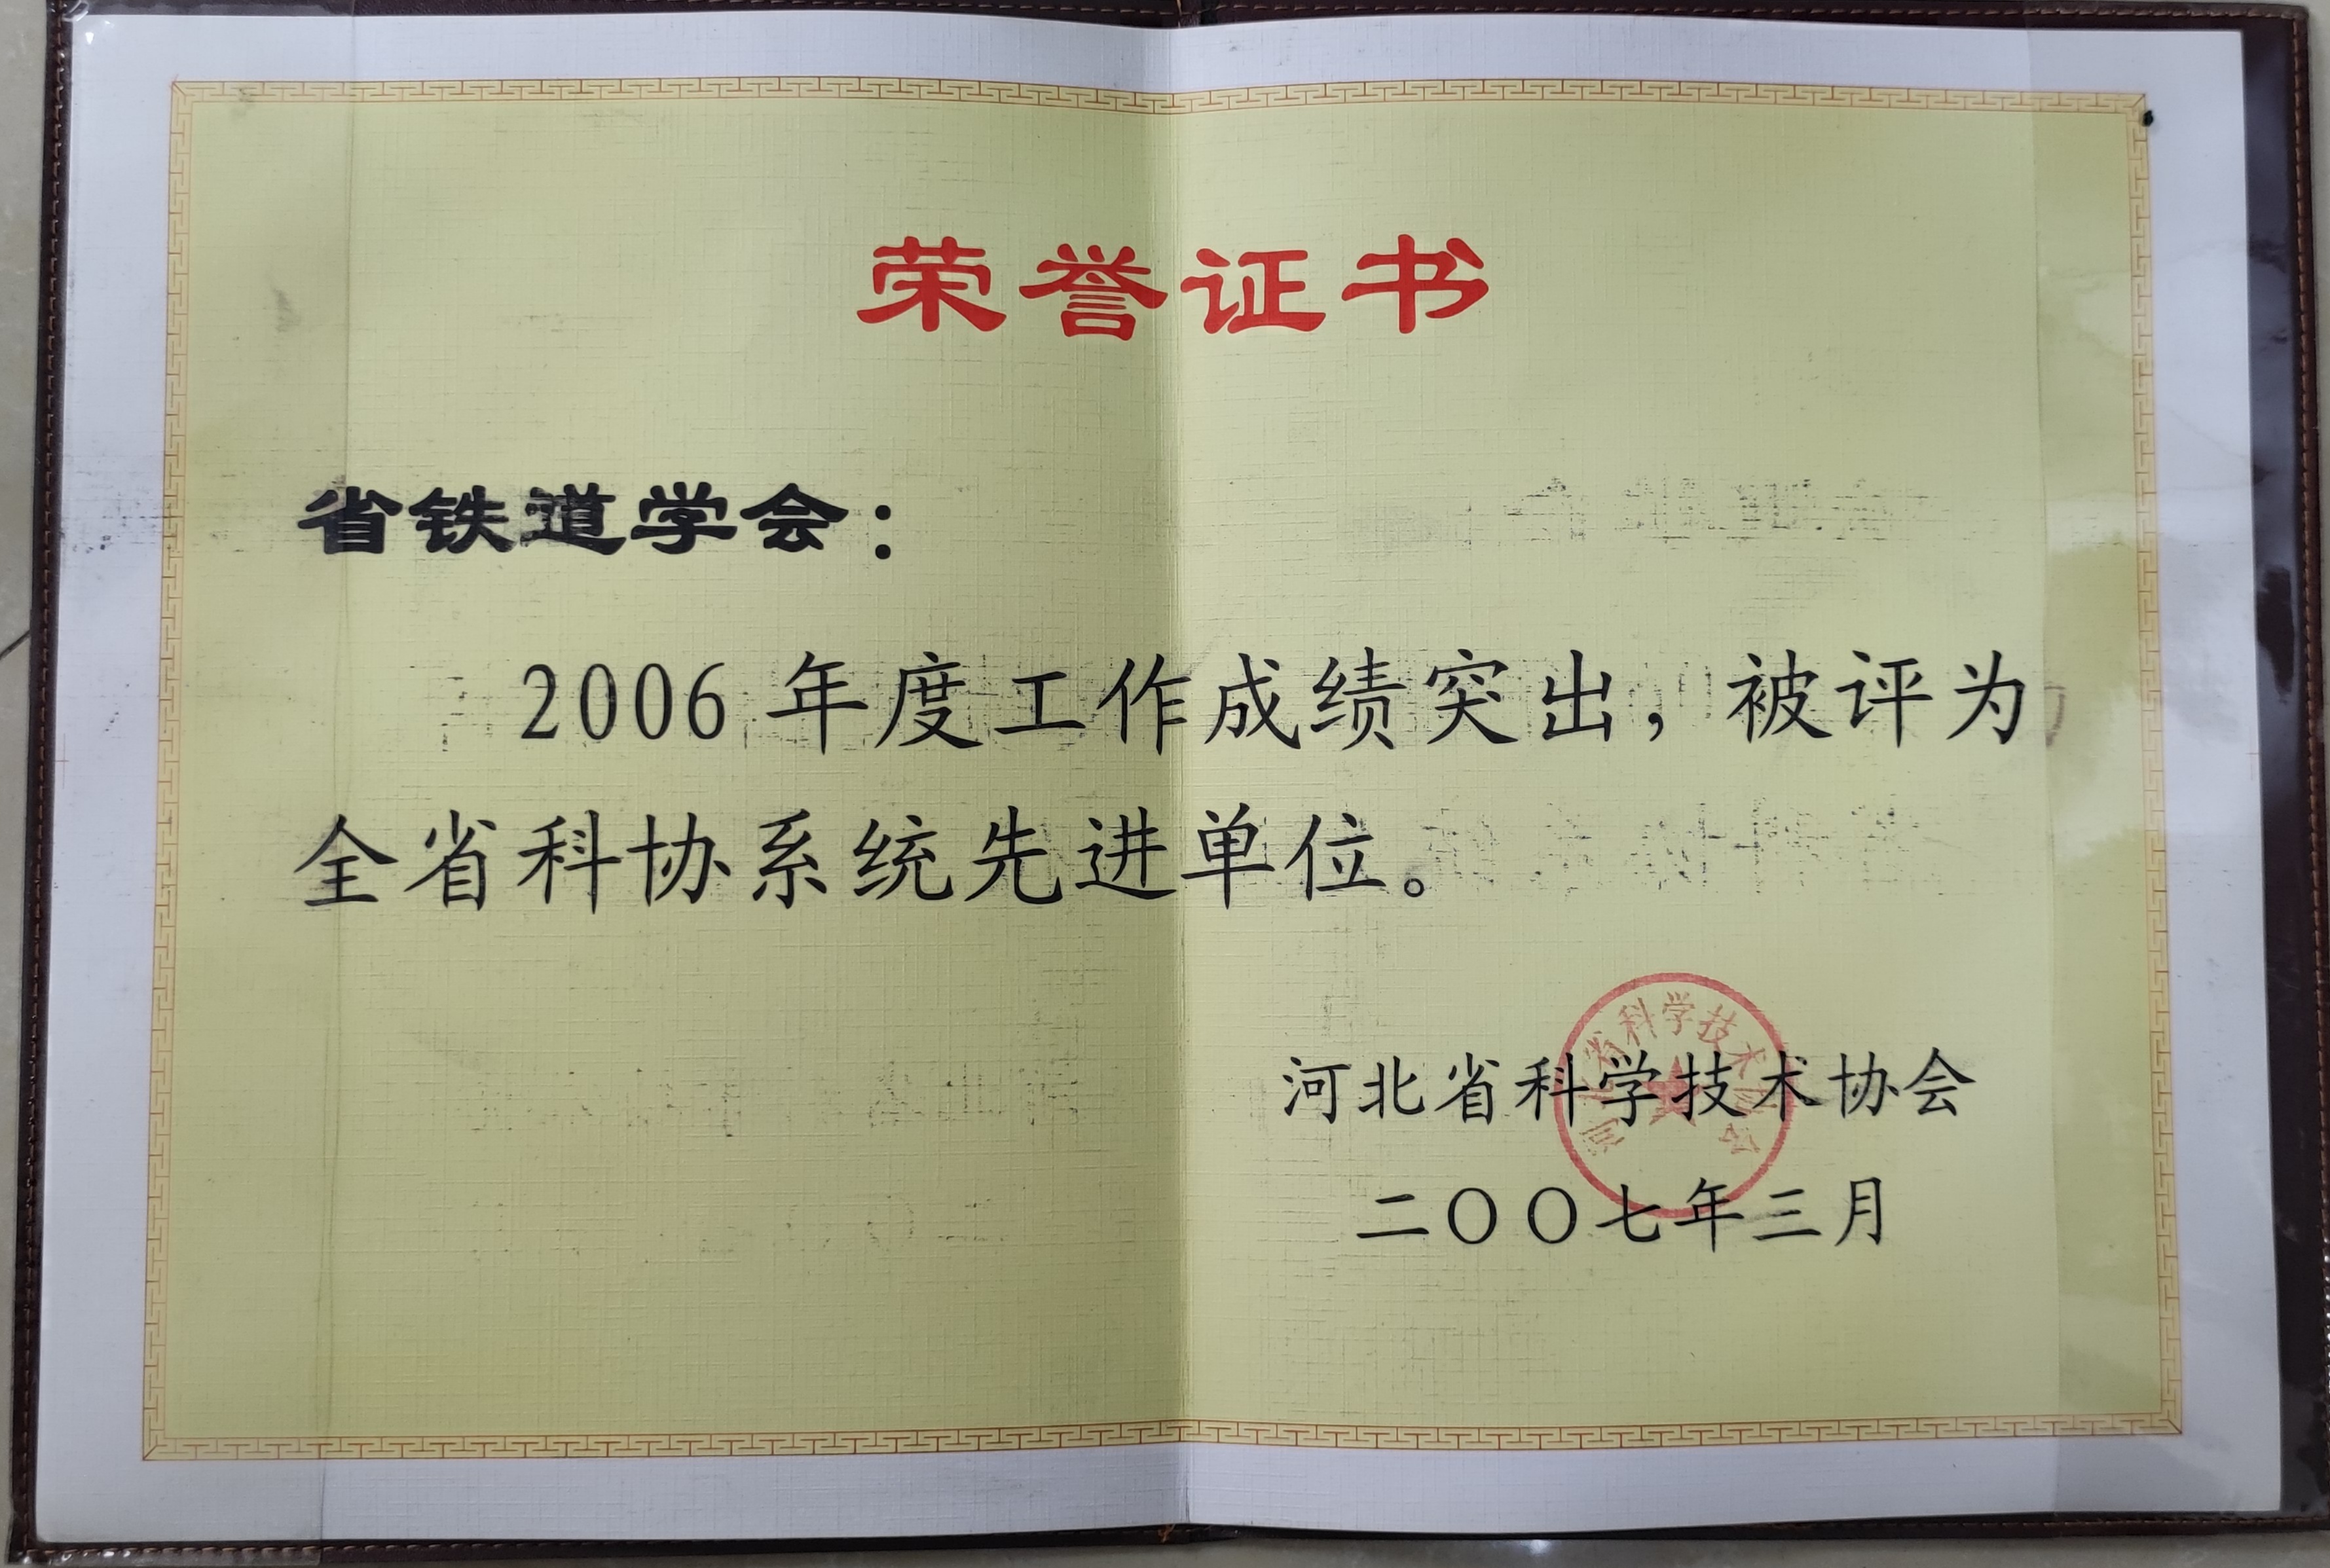 荣誉证书
省铁道学会：
2006年度工作成绩突出，被评为
全省科协系统先进单位。
省科学技术会
河北省科学技术协会
二〇〇七年三月